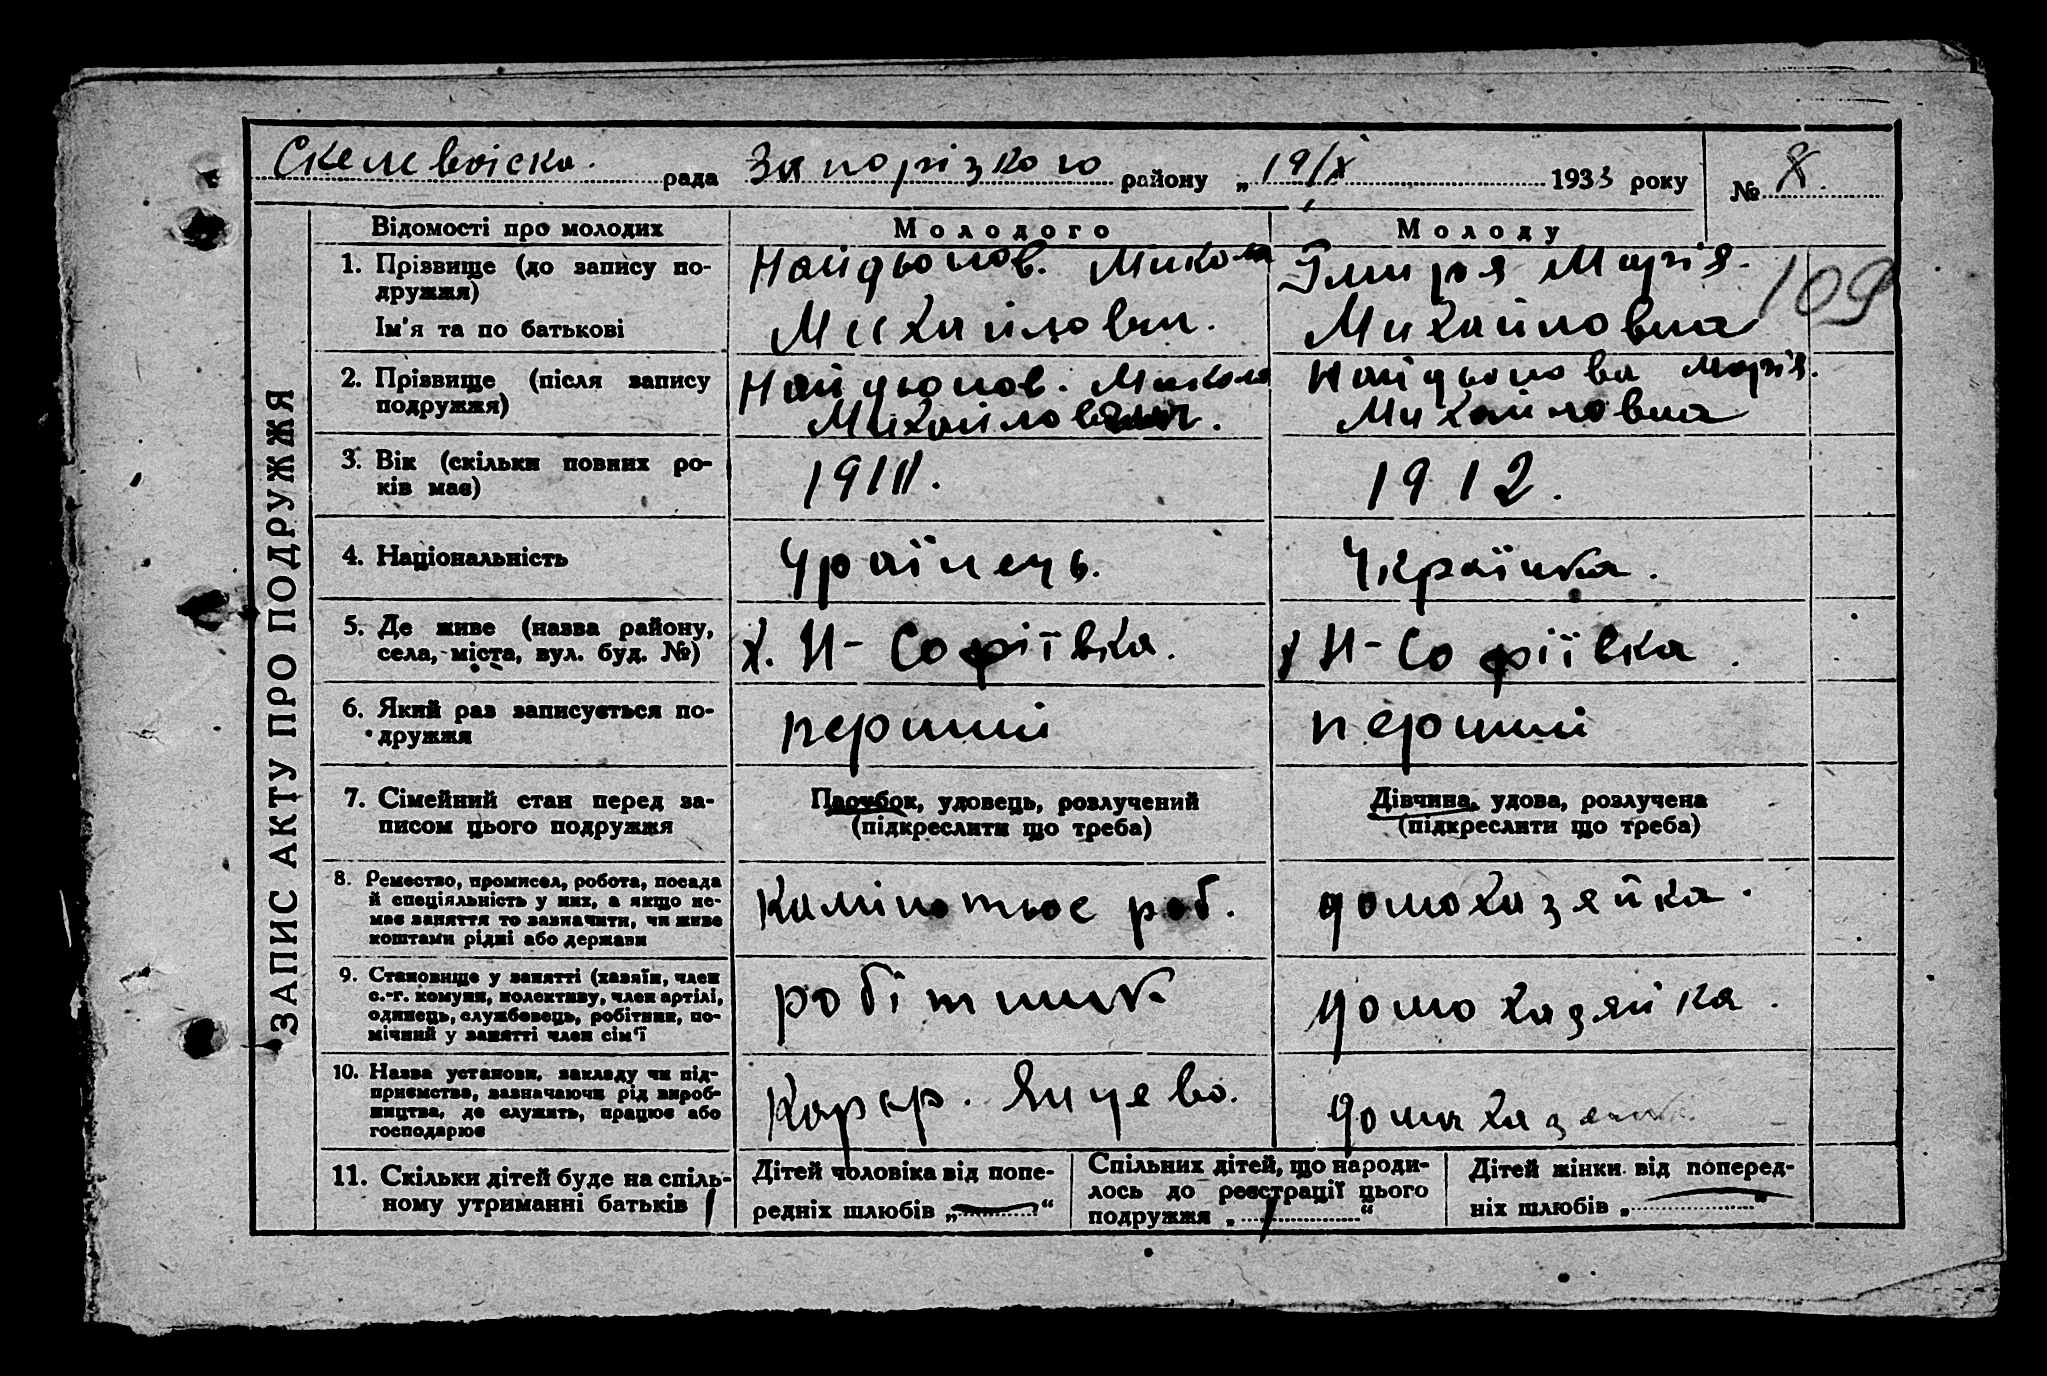 Скелеватська рада Запорізького району „19/X 1933 року № 8.
ЗАПИС АКТУ ПРО ПОДРУЖЖЯ
Відомості про молодих
Молодого
Молоду
109
1. Прізвище (до запису по-
дружжя)
Ім'я та по батькові
Найдьонов. Микола
Михайлович.
Марія.
Михайловна
2. Прізвище (після запису
подружжя)
Найдьонов. Микола
Михайлович.
Найдьонова Марія.
Михайловна
3. Вік (скільки повних ро-
ків має)
1911.
1912.
4. Національність
Україець.
Українка.
5. Де живе (назва району,
села, міста, вул. буд. №)
х. Н- Софіївка.
х Н- Софіївка.
6. Який раз записується по-
дружжя
перший
перший
7. Сімейний стан перед за-
писом цього подружжя
Парубок, удовець, розлучений
(підкреслити що треба)
Дівчина, удова, розлучена
(підкреслити що треба)
8. Ремество, промисел, робота, посада
й спеціяльність у них, а якщо не-
має заняття то зазначити, чи живе
коштами рідні або держави
роб.
домохазяйка.
9. Становище у занятті (хазяїн, член
с.-г. комуни, колективу, член артілі,
одинець, службовець, робітник, по-
мічний у занятті член сім'ї
робітник
домохазяйка.
10. Назва установи, закладу чи під-
приємства, зазначаючи рід вироб-
ництва, де служить, працює або
господарює
Карєр. Янцево.
11. Скільки дітей буде на спіль-
ному утриманні батьків 1
Дітей чоловіка від попе-
редніх шлюбів „—“
Спільних дітей, що народи-
лось до реєстрації цього
подружжя „1“
Дітей жінки від поперед-
ніх шлюбів „—“